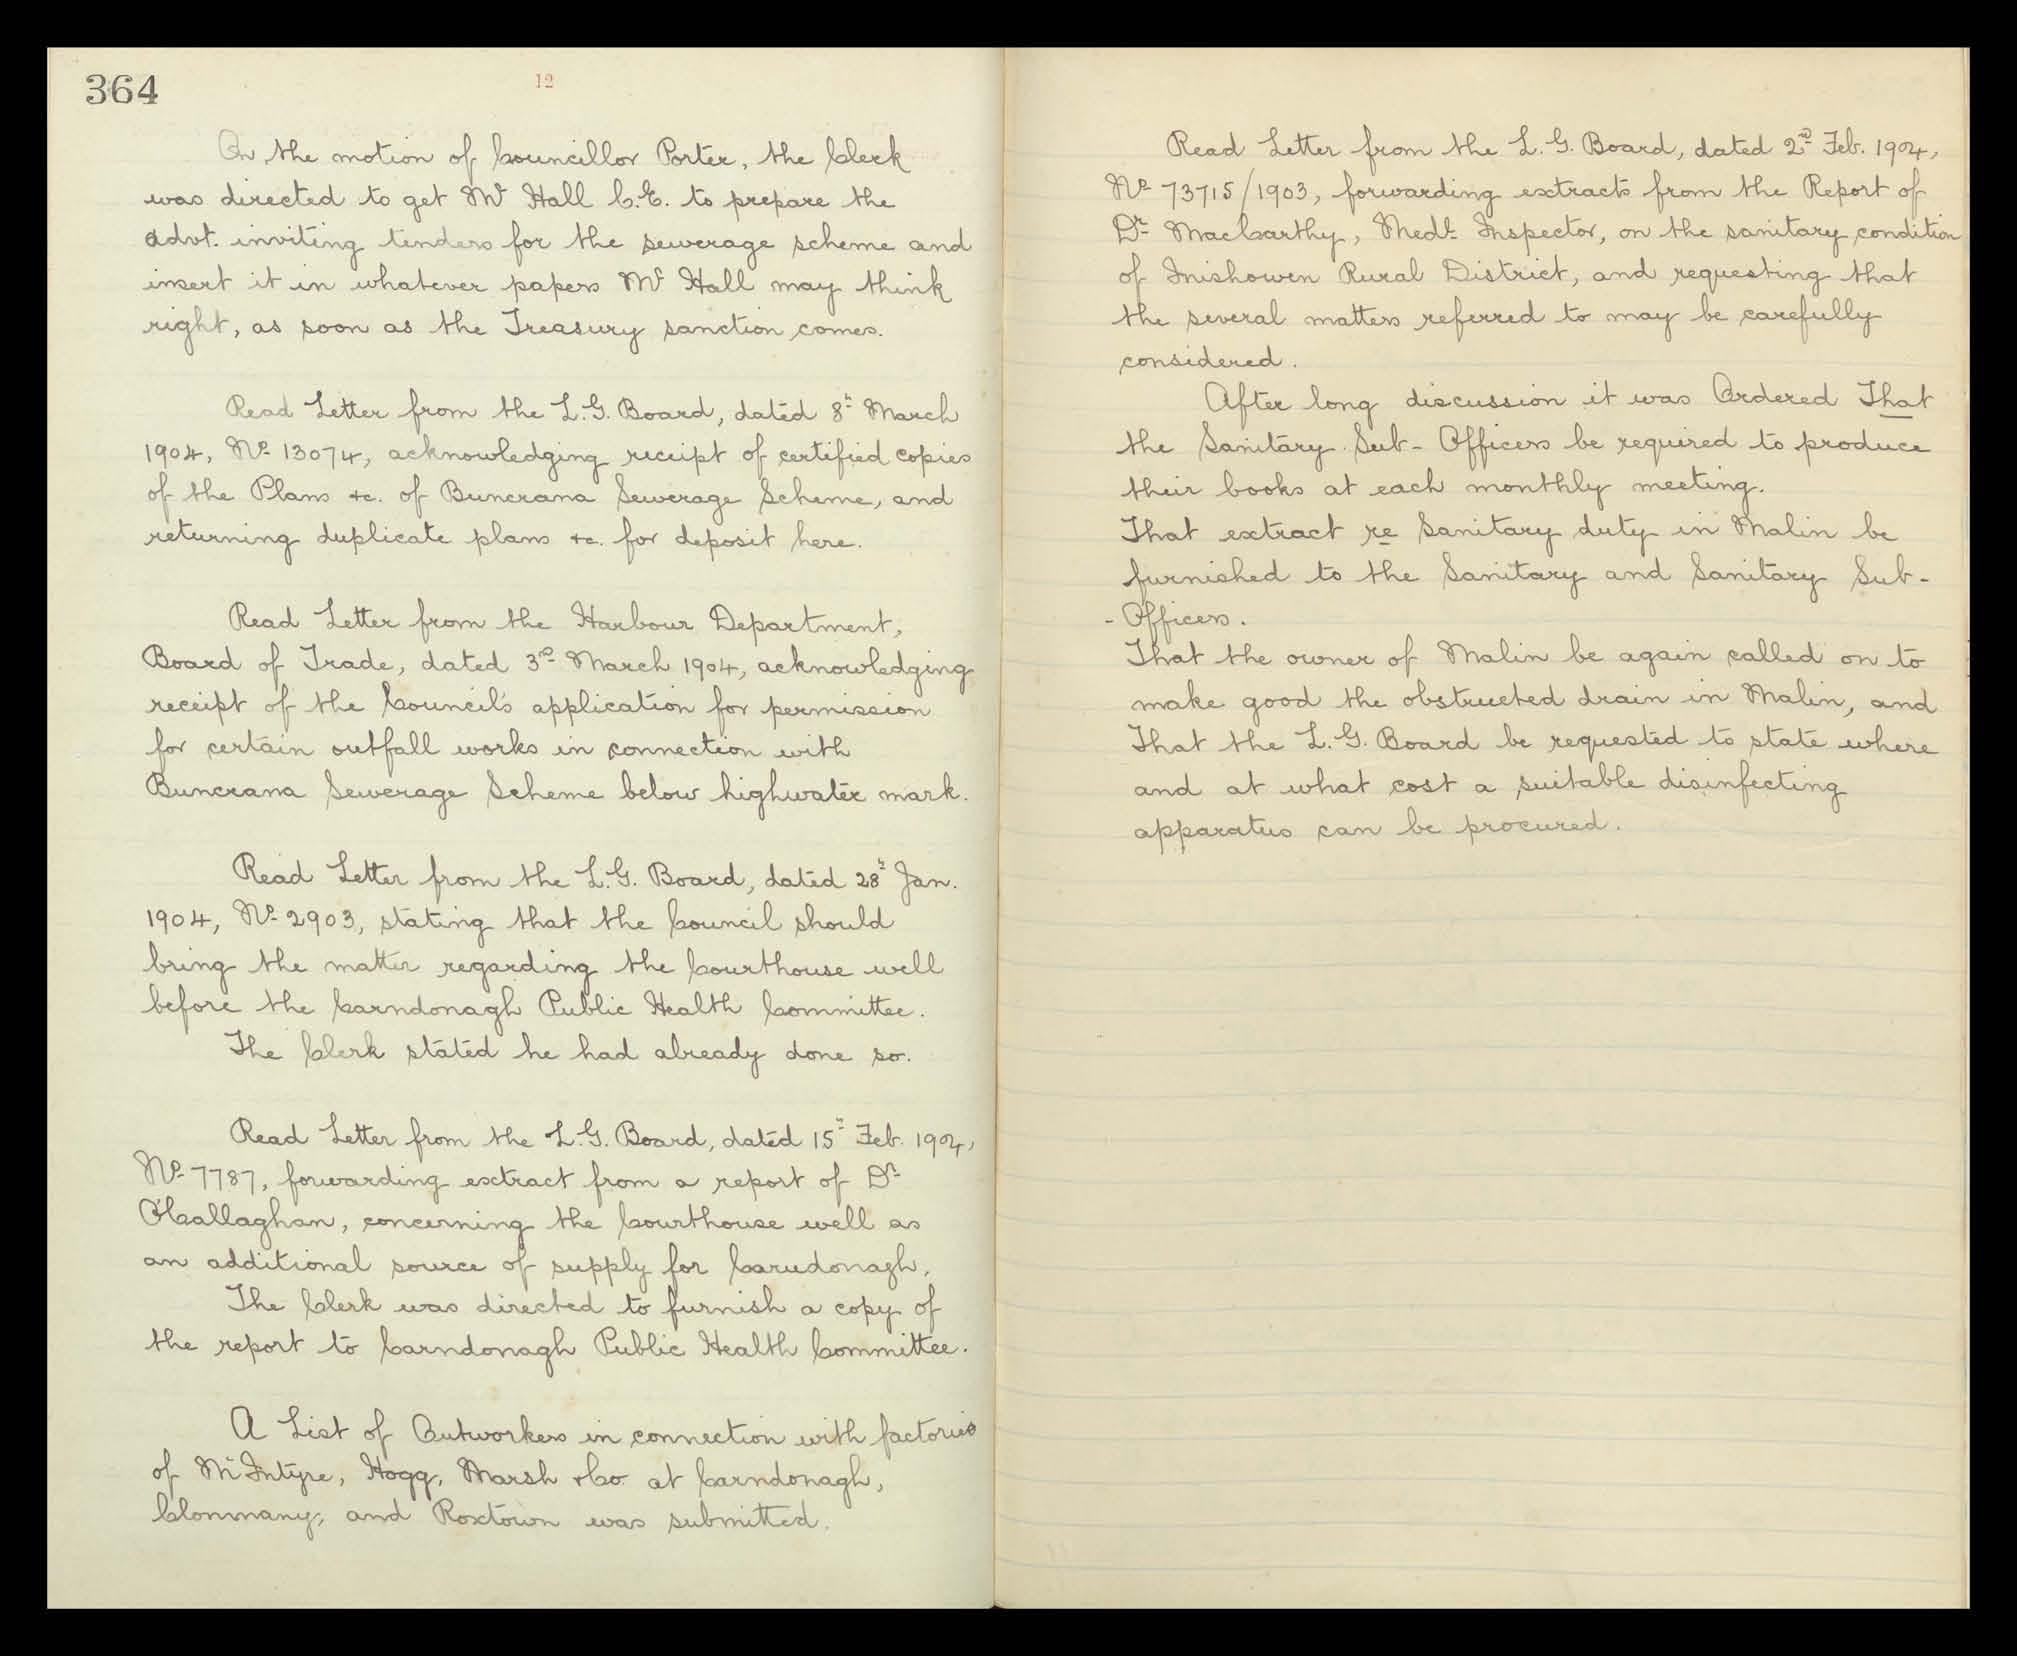 364
12
On the motion of Councillor Porter, the Clerk
was directed to get Mr Hall C.E. to prepare the
advt. inviting tenders for the sewerage scheme and
insert it in whatever papers Mr Hall may think
right, as soon as the Treasury sanction comes.
Read Letter from the L.G. Board, dated 8th March
1904, No 13074, acknowledging receipt of certified copies
of the Plans &c. of Buncrana Sewerage Scheme, and
returning duplicate plans &c. for deposit here.
Read Letter from the Harbour Department,
Board of Trade, dated 3rd March 1904, acknowledging
receipt of the Council's application for permission
for certain outfall works in connection with
Buncrana Sewerage Scheme below highwater mark.
Read Letter from the L.G. Board, dated 28th Jan.
1904, No 2903, stating that the Council should
bring the matter regarding the Courthouse well
before the Carndonagh Public Health Committee.
The Clerk stated he had already done so.
Read Letter from the L.G. Board, dated 15th Feb. 1904,
No 7787, forwarding extract from a report of Dr
O'Callaghan, concerning the Courthouse well as
an additional source of supply for Carndonagh.
The Clerk was directed to furnish a copy of
the report to Carndonagh Public Health Committee.
A List of Outworkers in connection with factories
of McIntyre, Hogg, Marsh & Co. at Carndonagh,
Clonmany, and Roxtown was submitted.
Read Letter from the L.G. Board, dated 2nd Feb. 1904,
No 73715/1903, forwarding extracts from the Report of
Dr MacCarthy, Medl Inspector, on the sanitary condition
of Inishowen Rural District, and requesting that
the several matters referred to may be carefully
considered.
After long discussion it was Ordered That
the Sanitary Sub- Officers be required to produce
their books at each monthly meeting.
That extract re Sanitary duty in Malin be
furnished to the Sanitary and Sanitary Sub-
- Officers.
That the owner of Malin be again called on to
make good the obstructed drain in Malin, and
That the L.G. Board be requested to state where
and at what cost a suitable disinfecting
apparatus can be procured.